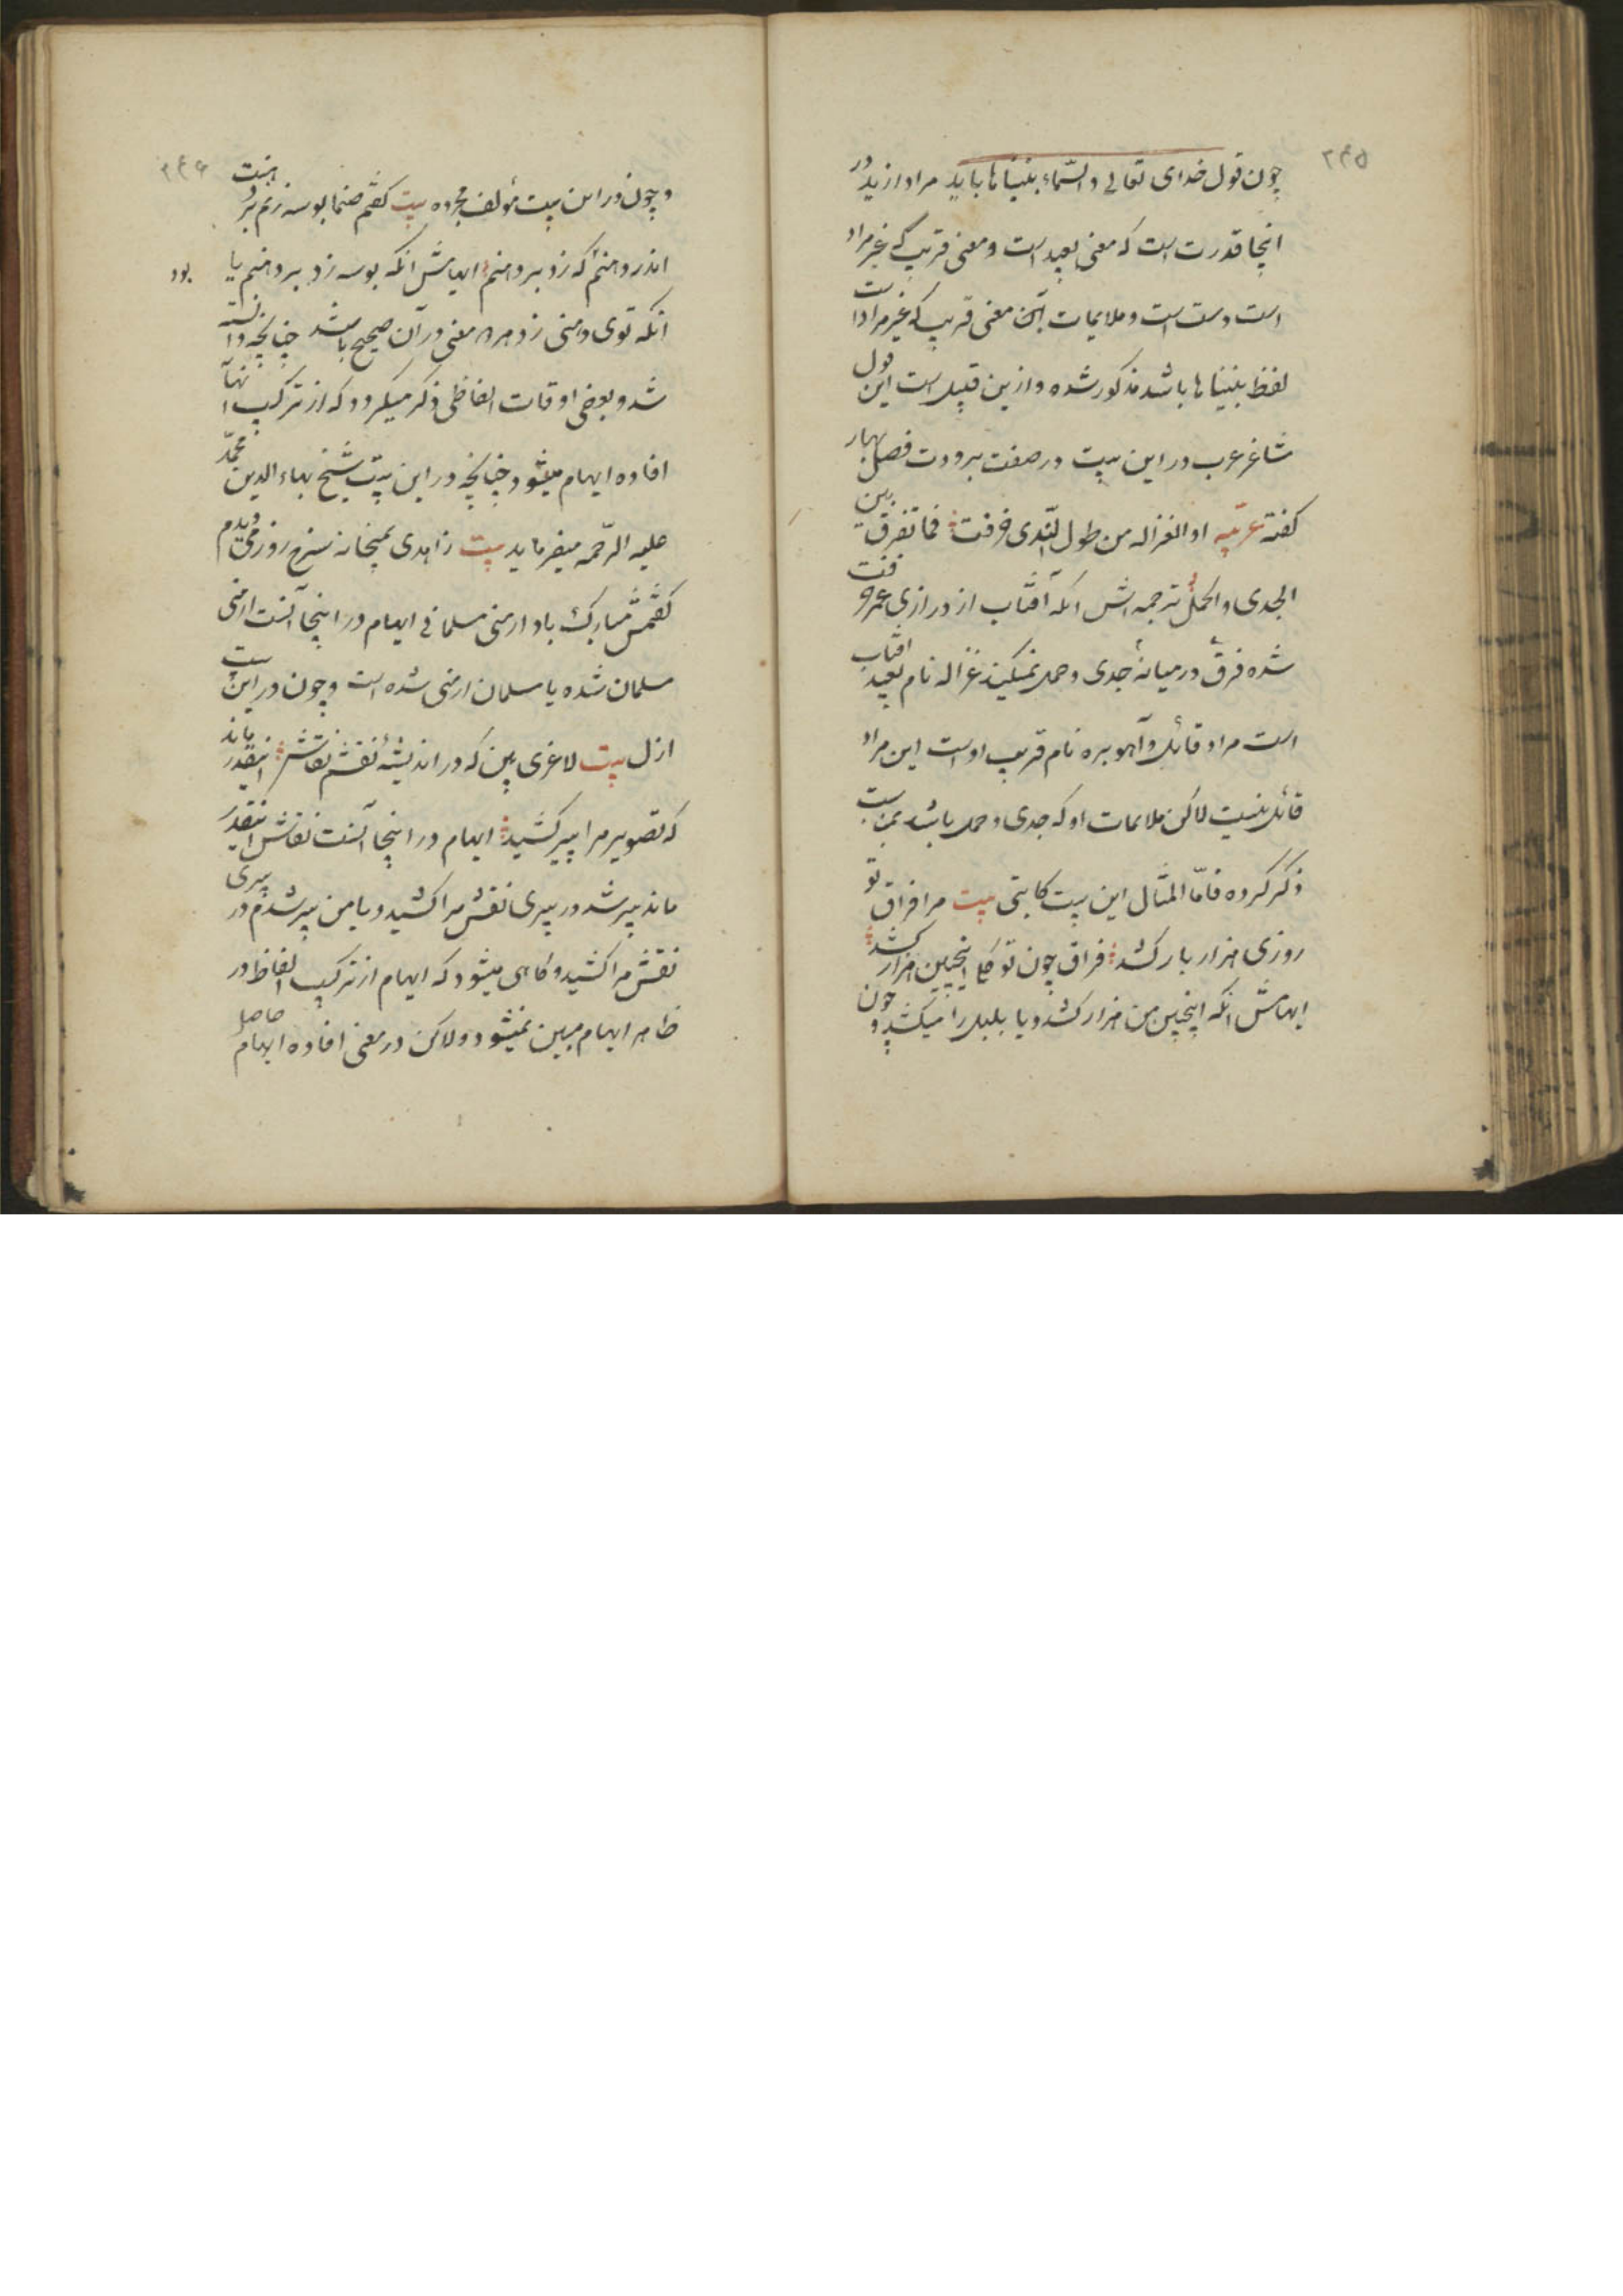 ۲۴۵
چون قول خدای تعالی والسّماء بنیناها باید مراد از ید در
اینجا قدرت است که معنی بعید است و معنی قریب که غیر مراد
است دست است و ملایمات آن معنی قریب که غیر مراد است
لفظ بنیناها باشد مذکور شده و از ین قبیل است این قول
شاعر عرب در این بیت در صفت برودت فصل بهار
کفته عربیّه او الغزاله من طول المدی خرفت فما تفرق بین
الجدی و الحمل ترجمه اش آنکه آفتاب از درازی عمر خرفت
شده فرق در میانهٔ جدی و حمل نمیکند غزاله نام بعید افتاب
است مراد قائل و آهو بره نام قریب اوست این مراد
قائل نیست لاکن ملایمات او که جدی و حمل باشد
ذکر کرده فامّا المثال این بیت کاتبی بیت مرا فراق تو
روزی هزار بار کشد فراق چون تو کلی اینچنین هزار کشد
ایهامش آنکه اینچنین من هزار کشد و یا بلبل را میکشد و چون
۲۴۶
و چون در این بیت مؤلف بیت کفتم صنما بوسه زنم بر دهنت
اندر دهنم که زد بر دهنم ایهامش آنکه بوسه زد بر دهنم یا بود
آنکه توی دهنی زد هر دو معنی در آن صحیح باشد چنانچه دانسته
شد و بعضی اوقات الفاظی ذکر میکردد که از ترکیب آنها
افاده ایهام میشود چنانچه در این بیت شیخ بهاء الدین محمّد
علیه الرّحمه میفرماید بیت زاهدی بمیخانه سرخ روز می دیدم
کفتمش مبارک باد ارمنی مسلمانی ایهام در اینجا آنست ارمنی
مسلمان شده یا مسلمان ارمنی شده است و چون در این بیت
ازل بیت لاغری بین که در اندیشهٔ نقشم نقاش اینقدر ماند
که تصویر مرا پیر کشید ایهام در اینجا آنست نقاش اینقدر
ماند پیر شد در پیری نقش مرا کشید و یا من پیر شدم در پیری
نقش مرا کشید و کاهی میشود که ایهام از ترکیب الفاظ در
ظاهر ایهام مبین نمیشود ولاکن در معنی افاده ایهام حاصل